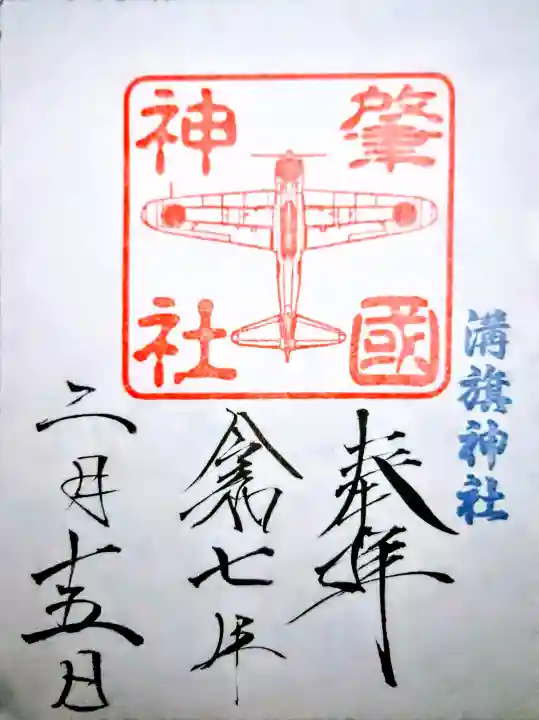 肇國
神社
溝旗神社
奉拝
令和七年
二月十五日